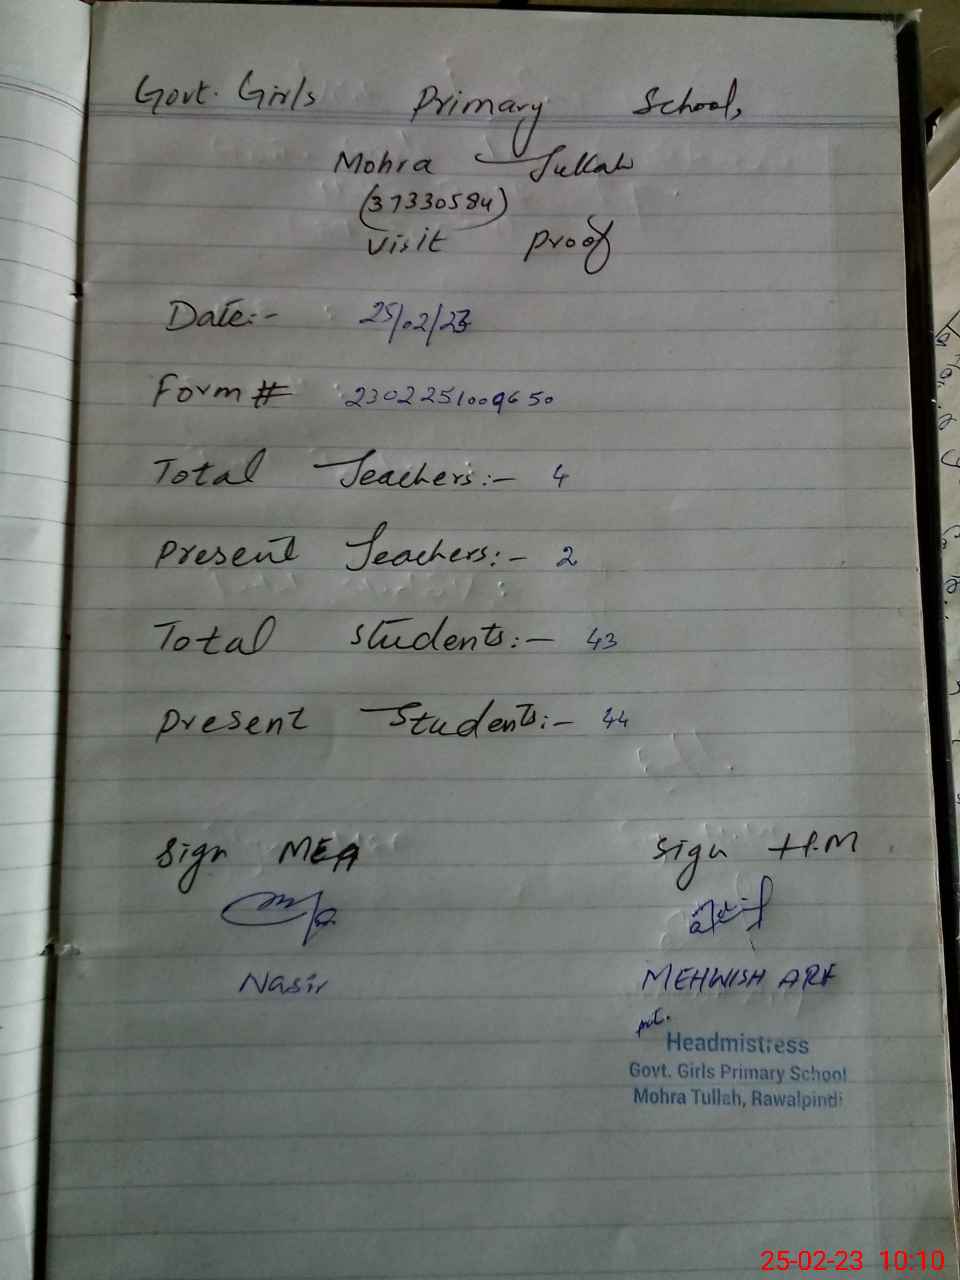 Govt. Girls Primary School,
Mohra Tullah
(37330584)
Visit Proof
Date:- 25/02/23
Form # 2302251009650
Total Teachers:- 4
Present Teachers:- 2
Total Students:- 43
Present Students:- 44
Sign MEA
Sign H.M
Nasir
MEHWISH ARF
Headmistress
Govt. Girls Primary School
Mohra Tullah, Rawalpindi
25-02-23 10:10